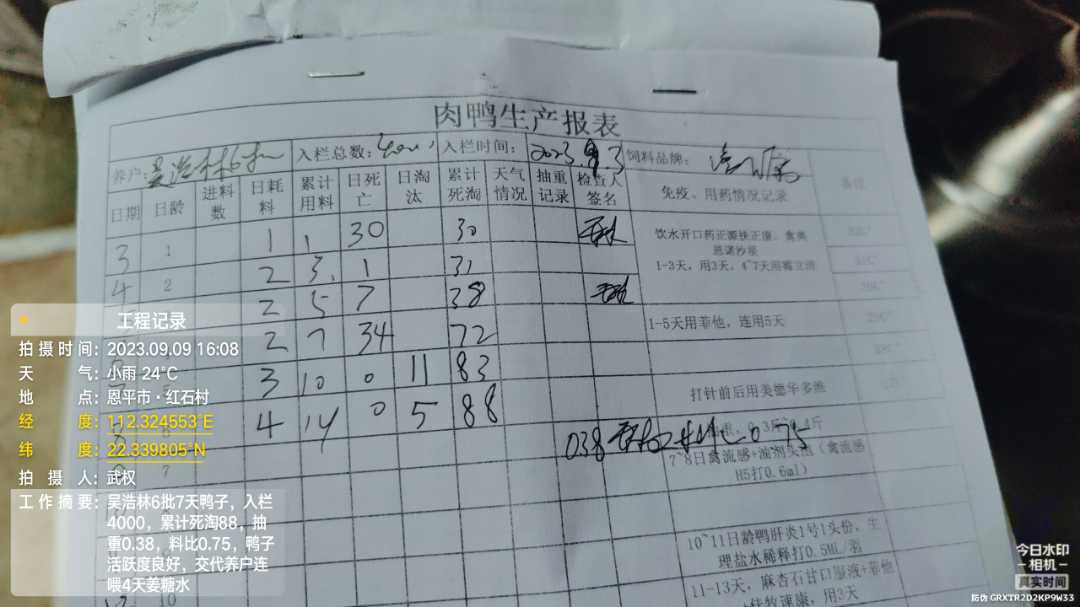 肉鸭生产报表
养户:吴浩林6批 入栏总数:4000 入栏时间:2023.9.3 饲料品牌:
日期 日龄 进料数 日耗料 累计用料 日死亡 日淘汰 累计死淘 天气情况 抽重记录 检查人签名 免疫、用药情况记录 备注
3 1 1 1 30 30
饮水开口药芷源扶正康、禽奥
恩诺沙星
1-3天,用3天,4~7天用霉立清
4 2 2 3 1 31
2 5 7 38
1-5天用菲他,连用5天
2 7 34 72
3 10 0 11 83
打针前后用美德华多维
8 6 4 14 0 5 88
038 0.75
9 7
7~8日禽流感+浆剂头孢(禽流感
H5打0.6ml)
10~11日龄鸭肝炎1号1头份,生
理盐水稀释打0.5ML/羽
10
11-13天,麻杏石甘口服液+菲他
速康,用3天
工程记录
拍摄时间:2023.09.09 16:08
天气:小雨 24°C
地点:恩平市·红石村
经度:112.324553°E
纬度:22.339805°N
拍摄人:武权
工作摘要:吴浩林6批7天鸭子,入栏
4000,累计死淘88,抽
重0.38,料比0.75,鸭子
活跃度良好,交代养户连
喂4天姜糖水
今日水印
相机
真实时间
防伪 GRXTR2D2KP9W33